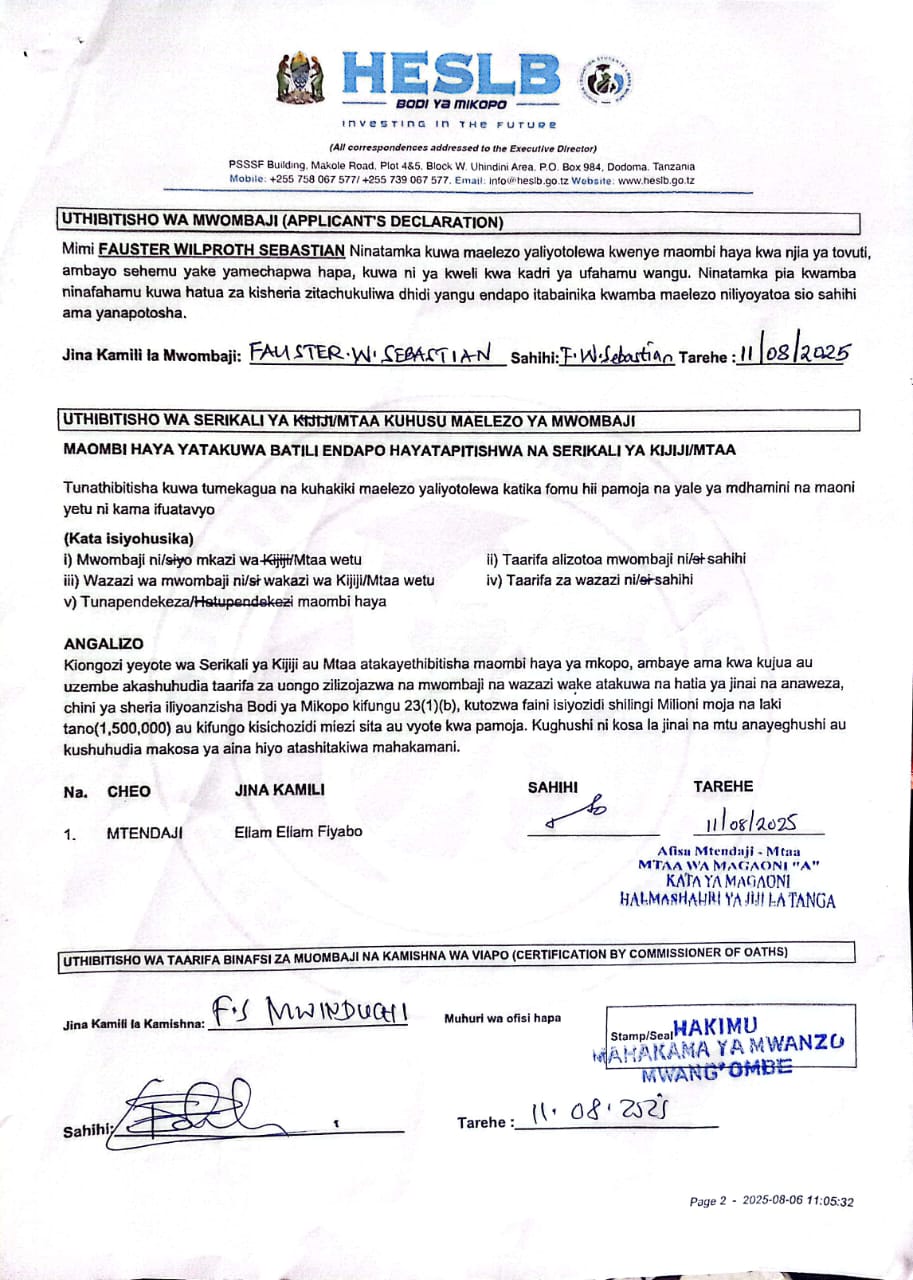 HESLB
BODI YA MIKOPO
INVESTING IN THE FUTURE
(All correspondences addressed to the Executive Director)
PSSSF Building, Makole Road, Plot 4&5, Block W, Uhindini Area, P.O. Box 984, Dodoma, Tanzania
Mobile: +255 758 067 577/ +255 739 067 577. Email: info@heslb.go.tz Website: www.heslb.go.tz
UTHIBITISHO WA MWOMBAJI (APPLICANT'S DECLARATION)
Mimi FAUSTER WILPROTH SEBASTIAN Ninatamka kuwa maelezo yaliyotolewa kwenye maombi haya kwa njia ya tovuti,
ambayo sehemu yake yamechapwa hapa, kuwa ni ya kweli kwa kadri ya ufahamu wangu. Ninatamka pia kwamba
ninafahamu kuwa hatua za kisheria zitachukuliwa dhidi yangu endapo itabainika kwamba maelezo niliyoyatoa sio sahihi
ama yanapotosha.
Jina Kamili la Mwombaji: FAUSTER.W.SEBASTIAN Sahihi: F.W.Sebastian Tarehe : 11/08/2025
UTHIBITISHO WA SERIKALI YA KIJIJI/MTAA KUHUSU MAELEZO YA MWOMBAJI
MAOMBI HAYA YATAKUWA BATILI ENDAPO HAYATAPITISHWA NA SERIKALI YA KIJIJI/MTAA
Tunathibitisha kuwa tumekagua na kuhakiki maelezo yaliyotolewa katika fomu hii pamoja na yale ya mdhamini na maoni
yetu ni kama ifuatavyo
(Kata isiyohusika)
i) Mwombaji ni/siyo mkazi wa Kijiji/Mtaa wetu ii) Taarifa alizotoa mwombaji ni/si sahihi
iii) Wazazi wa mwombaji ni/si wakazi wa Kijiji/Mtaa wetu iv) Taarifa za wazazi ni/si sahihi
v) Tunapendekeza/Hatupendekezi maombi haya
ANGALIZO
Kiongozi yeyote wa Serikali ya Kijiji au Mtaa atakayethibitisha maombi haya ya mkopo, ambaye ama kwa kujua au
uzembe akashuhudia taarifa za uongo zilizojazwa na mwombaji na wazazi wake atakuwa na hatia ya jinai na anaweza,
chini ya sheria iliyoanzisha Bodi ya Mikopo kifungu 23(1)(b), kutozwa faini isiyozidi shilingi Milioni moja na laki
tano(1,500,000) au kifungo kisichozidi miezi sita au vyote kwa pamoja. Kughushi ni kosa la jinai na mtu anayeghushi au
kushuhudia makosa ya aina hiyo atashitakiwa mahakamani.
Na. CHEO JINA KAMILI SAHIHI TAREHE
1. MTENDAJI Eliam Eliam Fiyabo 11/08/2025
Afisa Mtendaji - Mtaa
MTAA WA MAGAONI "A"
KATA YA MAGAONI
HALMASHAURI YA JIJI LA TANGA
UTHIBITISHO WA TAARIFA BINAFSI ZA MUOMBAJI NA KAMISHNA WA VIAPO (CERTIFICATION BY COMMISSIONER OF OATHS)
Jina Kamili la Kamishna: F.S MWINDUCHI Muhuri wa ofisi hapa
Stamp/Seal HAKIMU
MAHAKAMA YA MWANZO
MWANG'OMBE
Sahihi: Tarehe : 11.08.2025
Page 2 - 2025-08-06 11:05:32